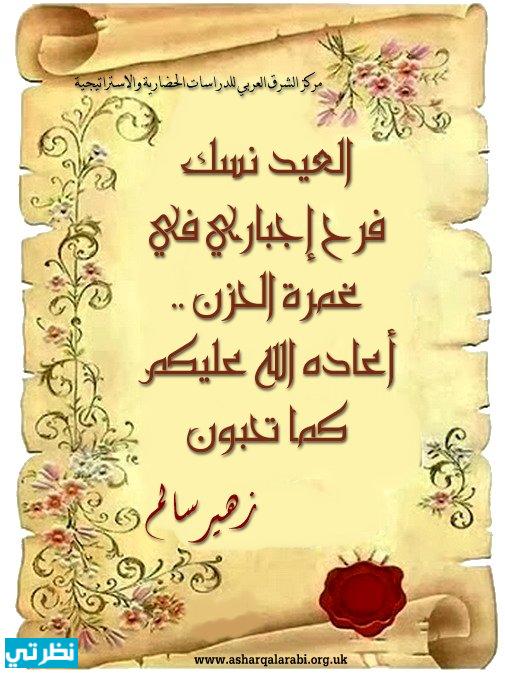 مركز الشرق العربي للدراسات الحضارية والاستراتيجية
العيد نسك
فرح إجباري في
غمرة الحزن ..
أعاده الله عليكم
كما تحبون
زهير سالم
نظرتي
www.asharqalarabi.org.uk